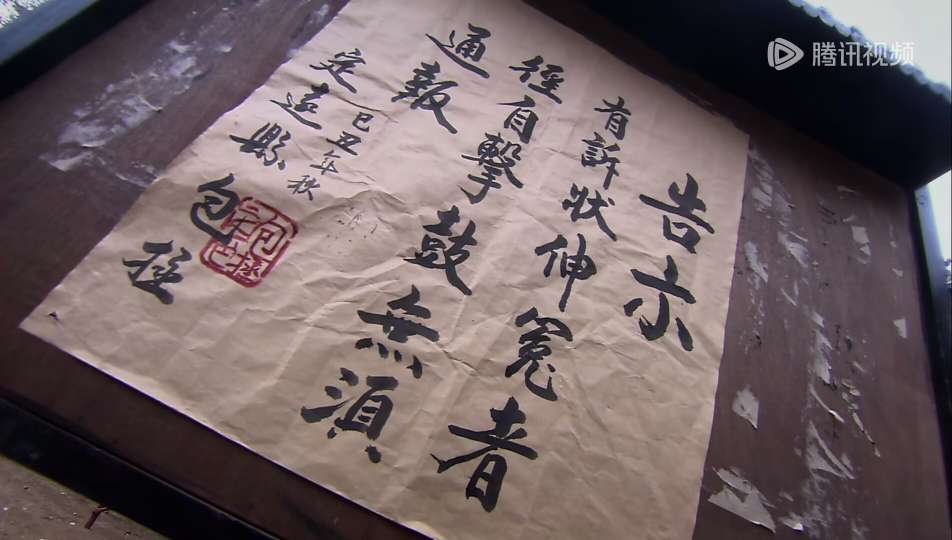 告示
有訴狀伸冤者
徑自擊鼓無須
通報
己丑年秋
定遠縣
包拯
腾讯视频